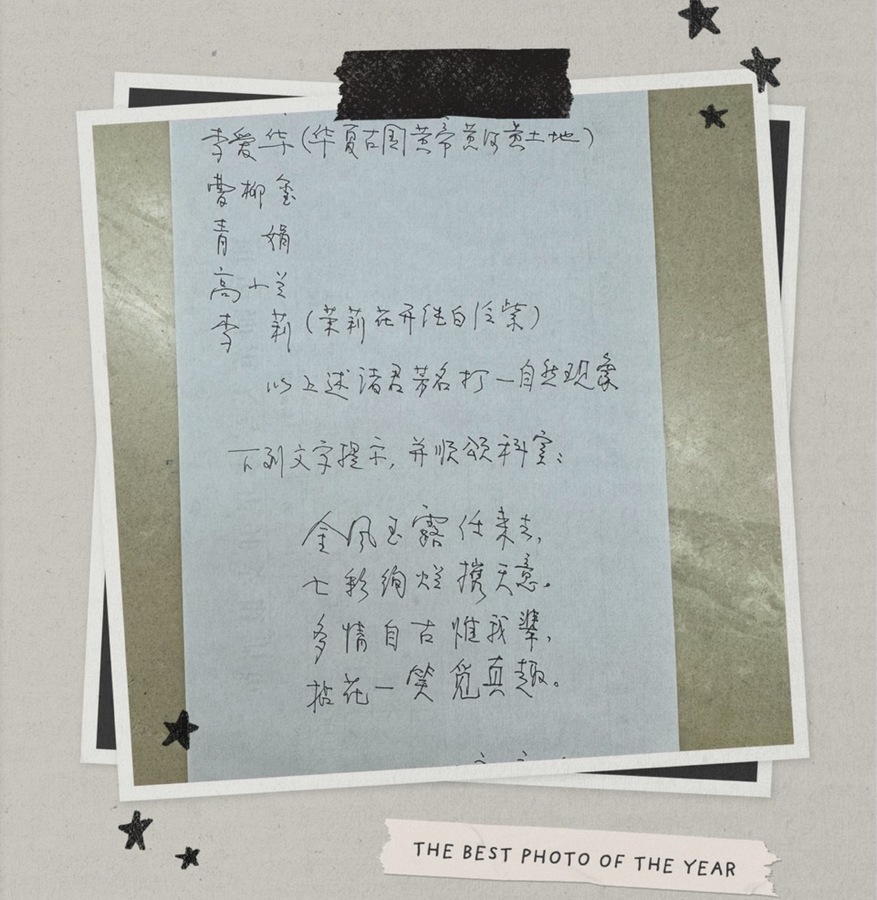 李爱华(华夏古国黄帝黄河黄土地)
曹柳
青 娟
高小兰
李 莉(茉莉花开 白 紫)
以上述诸君芳名打一自然现象
下列文字提示,并顺颂科室:
金风玉露任来去,
七彩绚烂携天意。
多情自古惟我辈,
拈花一笑觅真趣。
THE BEST PHOTO OF THE YEAR